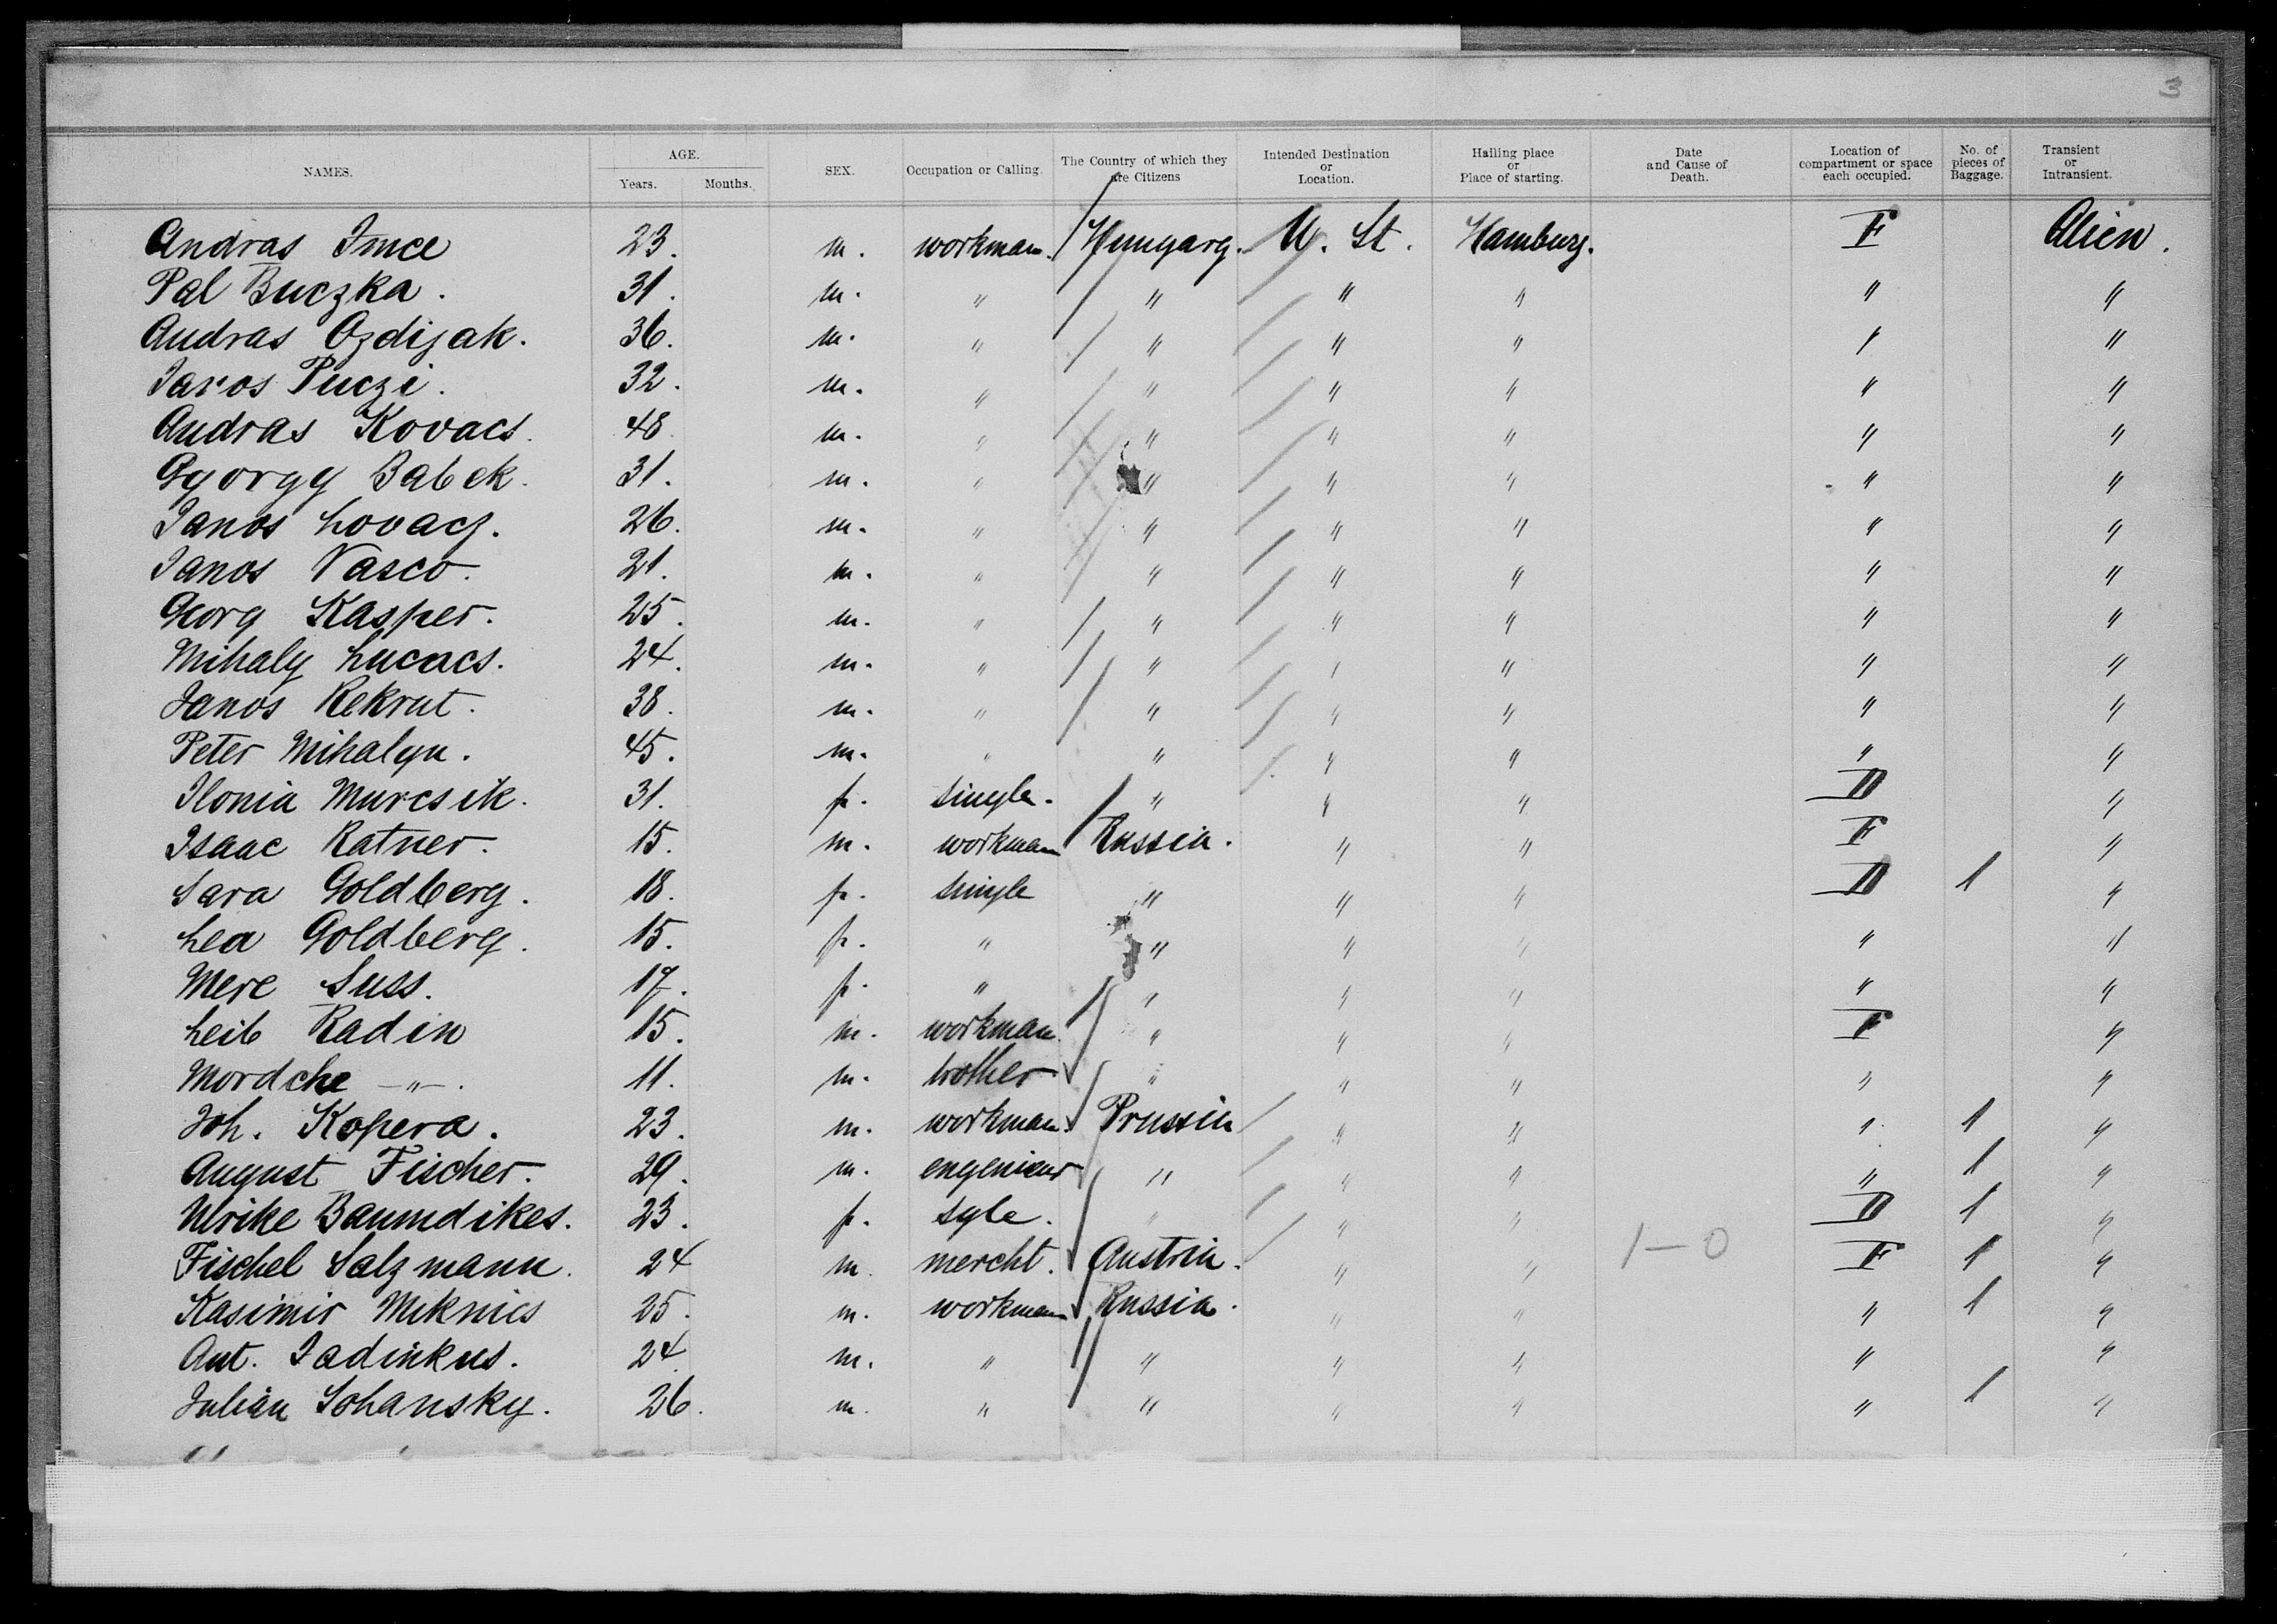 3
NAMES. AGE. Years. Months. SEX. Occupation or Calling. The Country of which they are Citizens Intended Destination or Location. Hailing place or Place of starting. Date and Cause of Death. Location of compartment or space each occupied. No. of pieces of Baggage. Transient or Intransient.
Andras Imce 23. m. workman. Hungary. U. St. Hamburg. F Alien.
Pal Buczka. 31. m. " " " " " "
Andras Ozdijak. 36. m. " " " " " "
Janos Puczi. 32. m. " " " " " "
Andras Kovacs. 48. m. " " " " " "
Gyorgy Babek. 31. m. " " " " " "
Janos Lovacz. 26. m. " " " " " "
Janos Vasco. 21. m. " " " " " "
Georg Kasper. 25. m. " " " " " "
Mihaly Lucacs. 24. m. " " " " " "
Janos Rekrut. 38. m. " " " " " "
Peter Mihalyn. 45. m. " " " " " "
Ilonia Murcsik. 31. f. single. " " " D "
Isaac Ratner. 15. m. workman Russia. " " F "
Sara Goldberg. 18. f. single " " " D 1 "
Lea Goldberg. 15. f. " " " " " "
Mere Suss. 17. f. " " " " " "
Leib Radin 15. m. workman. " " " F "
Mordche -"-. 11. m. brother " " " " "
Joh. Kopera. 23. m. workman. Prussia " " " 1 "
August Fischer. 29. m. engenieur " " " " 1 "
Ulrike Baumdikes. 23. f. sgle. " " " D 1 "
Fischel Salzmann. 24 m. mercht. Austria. " " 1-0 F 1 "
Kasimir Miknies 25. m. workman Russia. " " " 1 "
Ant. Jadinkus. 24. m. " " " " " "
Julian Sohansky. 26. m. " " " " " 1 "